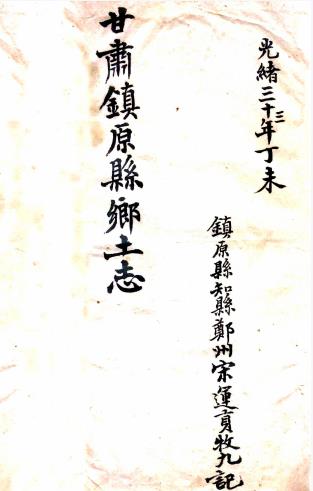 光緒三十三年丁未
鎮原縣知縣鄭州宋運貢牧九記
甘肅鎮原縣鄉土志